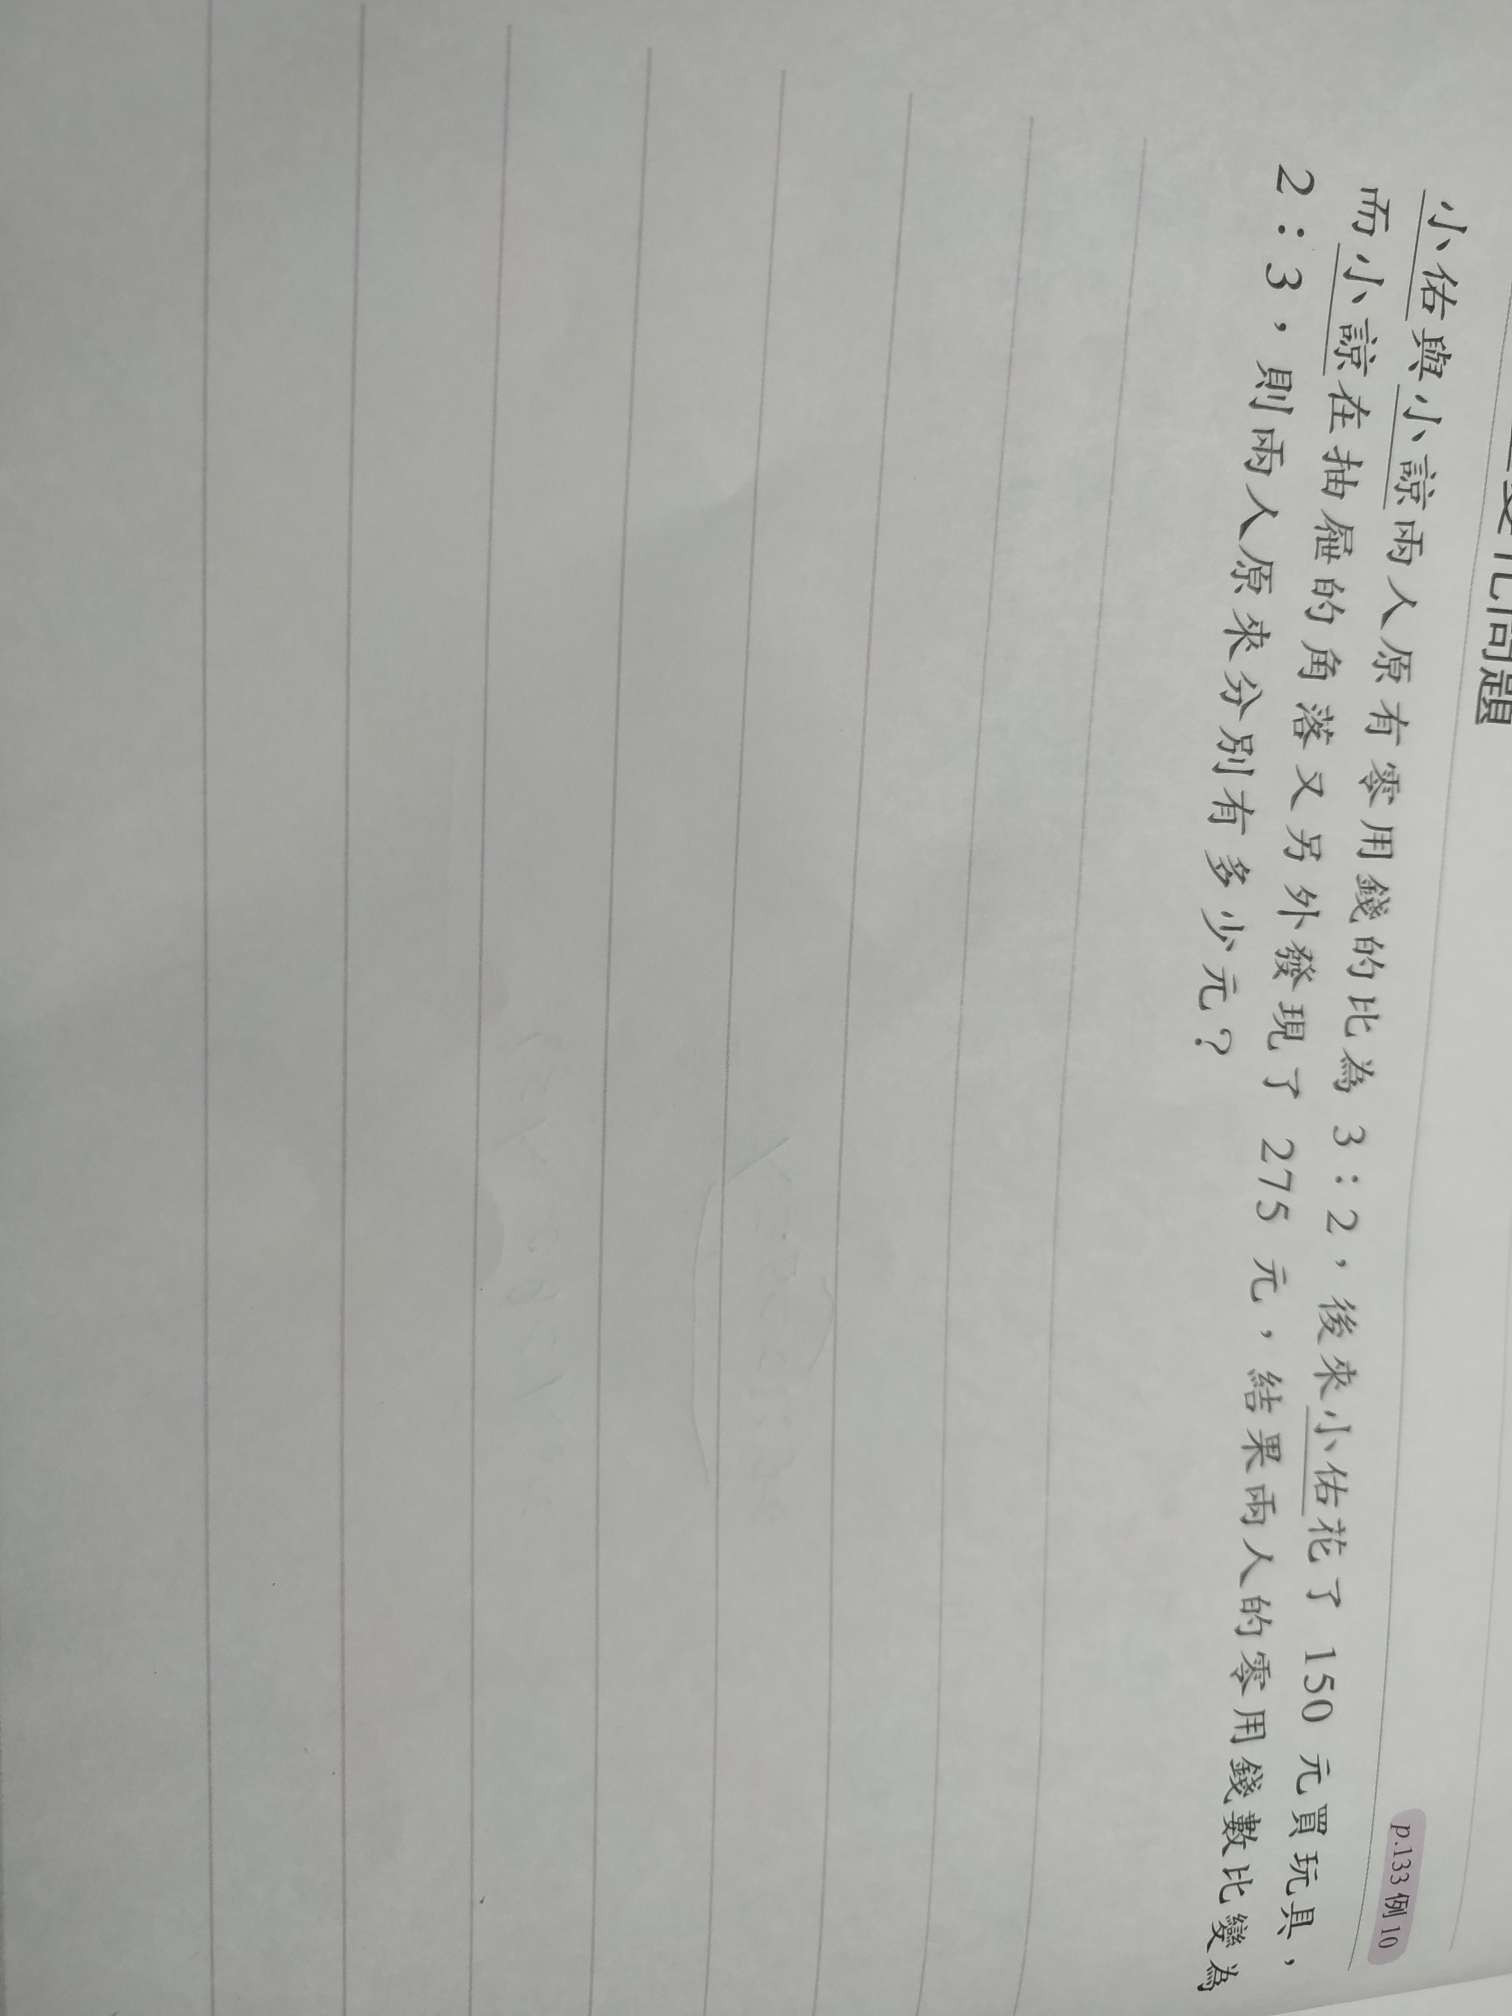 化問題
p.133 例 10
小佑與小諒兩人原有零用錢的比為 3：2，後來小佑花了 150 元買玩具，
而小諒在抽屜的角落又另外發現了 275 元，結果兩人的零用錢數比變為
2：3，則兩人原來分別有多少元？